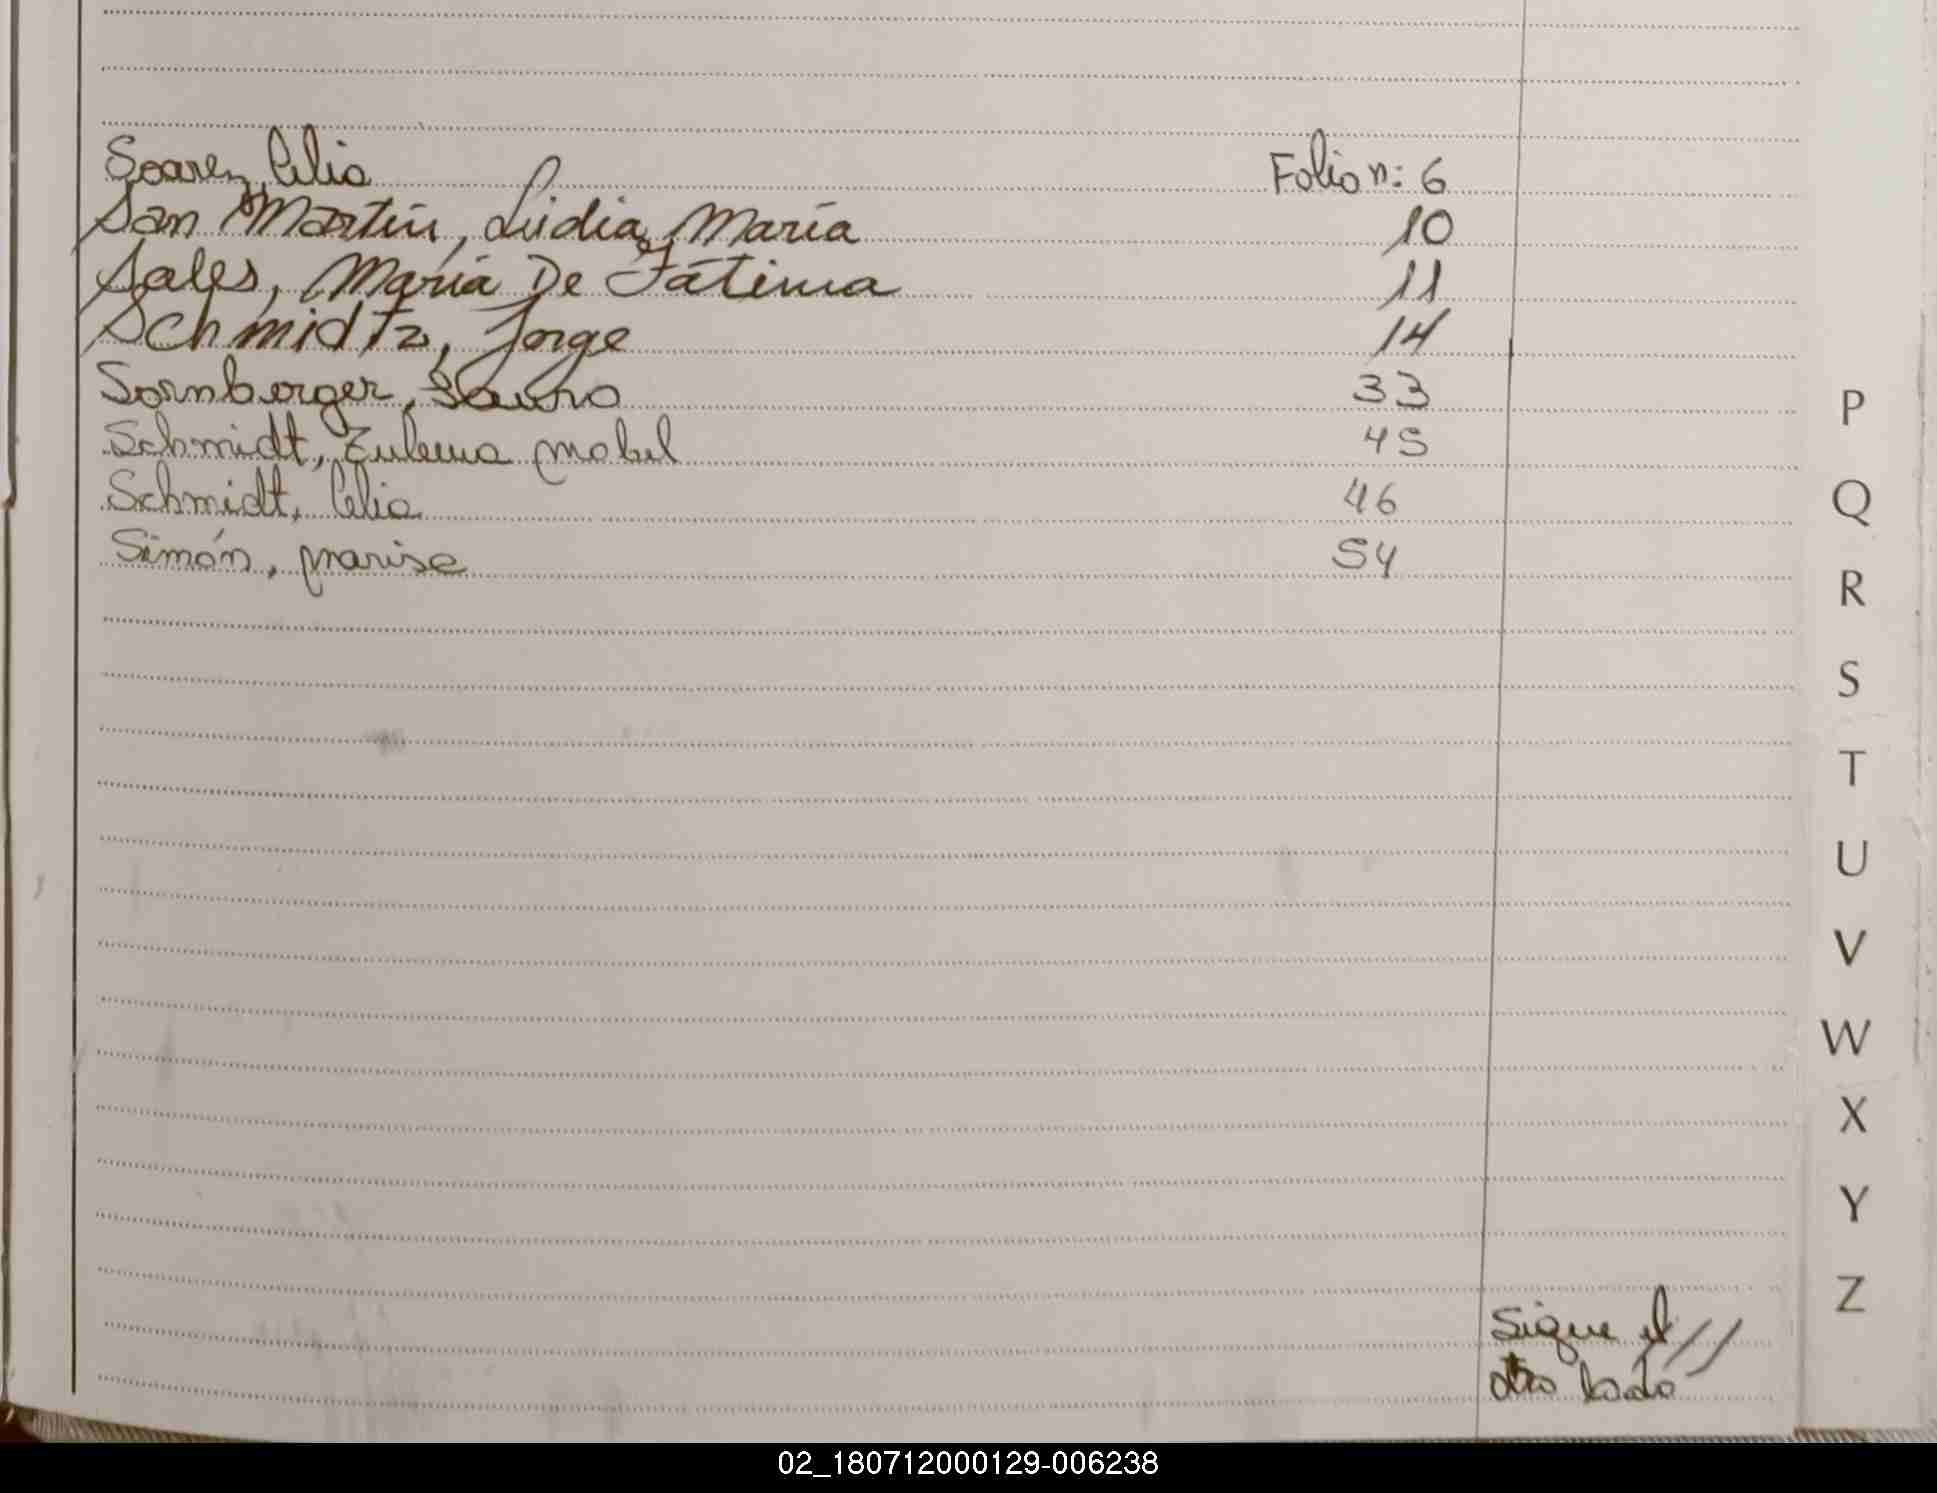 Soarez, Celia Folio n: 6
San Martín, Lidia María 10
Sales, María De Fátima 11
Schmidtz, Jorge 14
Sornberger, Laura 33
Schmidt, Zulema Mabel 45
Schmidt, Celia 46
Simón, Marisa 54
P
Q
R
S
T
U
V
W
X
Y
Z
Sigue al //
otro lado
02_180712000129-006238